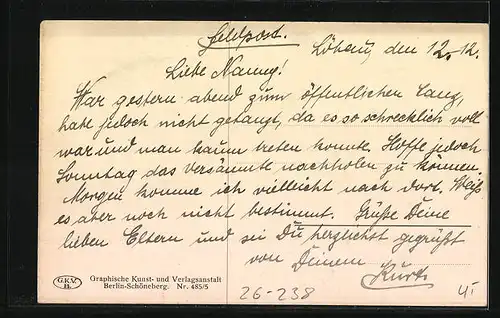 Feldpost.
Löbau, den 12.12.
Liebe Nanny!
War gestern abend zum öffentlichen Tanz,
habe jedoch nicht getanzt, da es so schrecklich voll
war und man kaum treten konnte. Hoffe jedoch
Sonntag das Versäumte nachholen zu können.
Morgen komme ich vielleicht nach dort. Weiß
es aber noch nicht bestimmt. Grüße Deine
lieben Eltern und sei Du herzlichst gegrüßt
von Deinem
Kurt.
G.K.V.
B.
Graphische Kunst- und Verlagsanstalt
Berlin-Schöneberg. Nr. 485/5
26-238